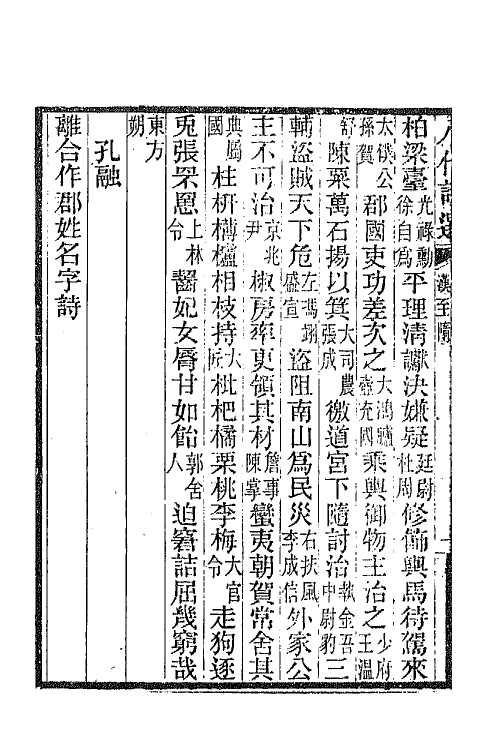 八代詩選
柏梁臺光祿勳徐自爲平理清讞決嫌疑廷尉杜周修飾輿馬待駕來
太僕公孫賀郡國吏功差次之大鴻臚壺充國乘輿御物主治之少府王溫
舒陳粟萬石揚以箕大司農張成徼道宮下隨討治執金吾中尉豹三
輔盜賊天下危左馮翊盛宣盜阻南山爲民災右扶風李成信外家公
主不可治京兆尹椒房率更領其材詹事陳掌蠻夷朝賀常舍其
典屬國柱枅欂櫨相枝持大匠枇杷橘栗桃李梅大官令走狗逐
兎張罘罳上林令齧妃女脣甘如飴郭舍人迫窘詰屈幾窮哉
東方朔
孔融
離合作郡姓名字詩